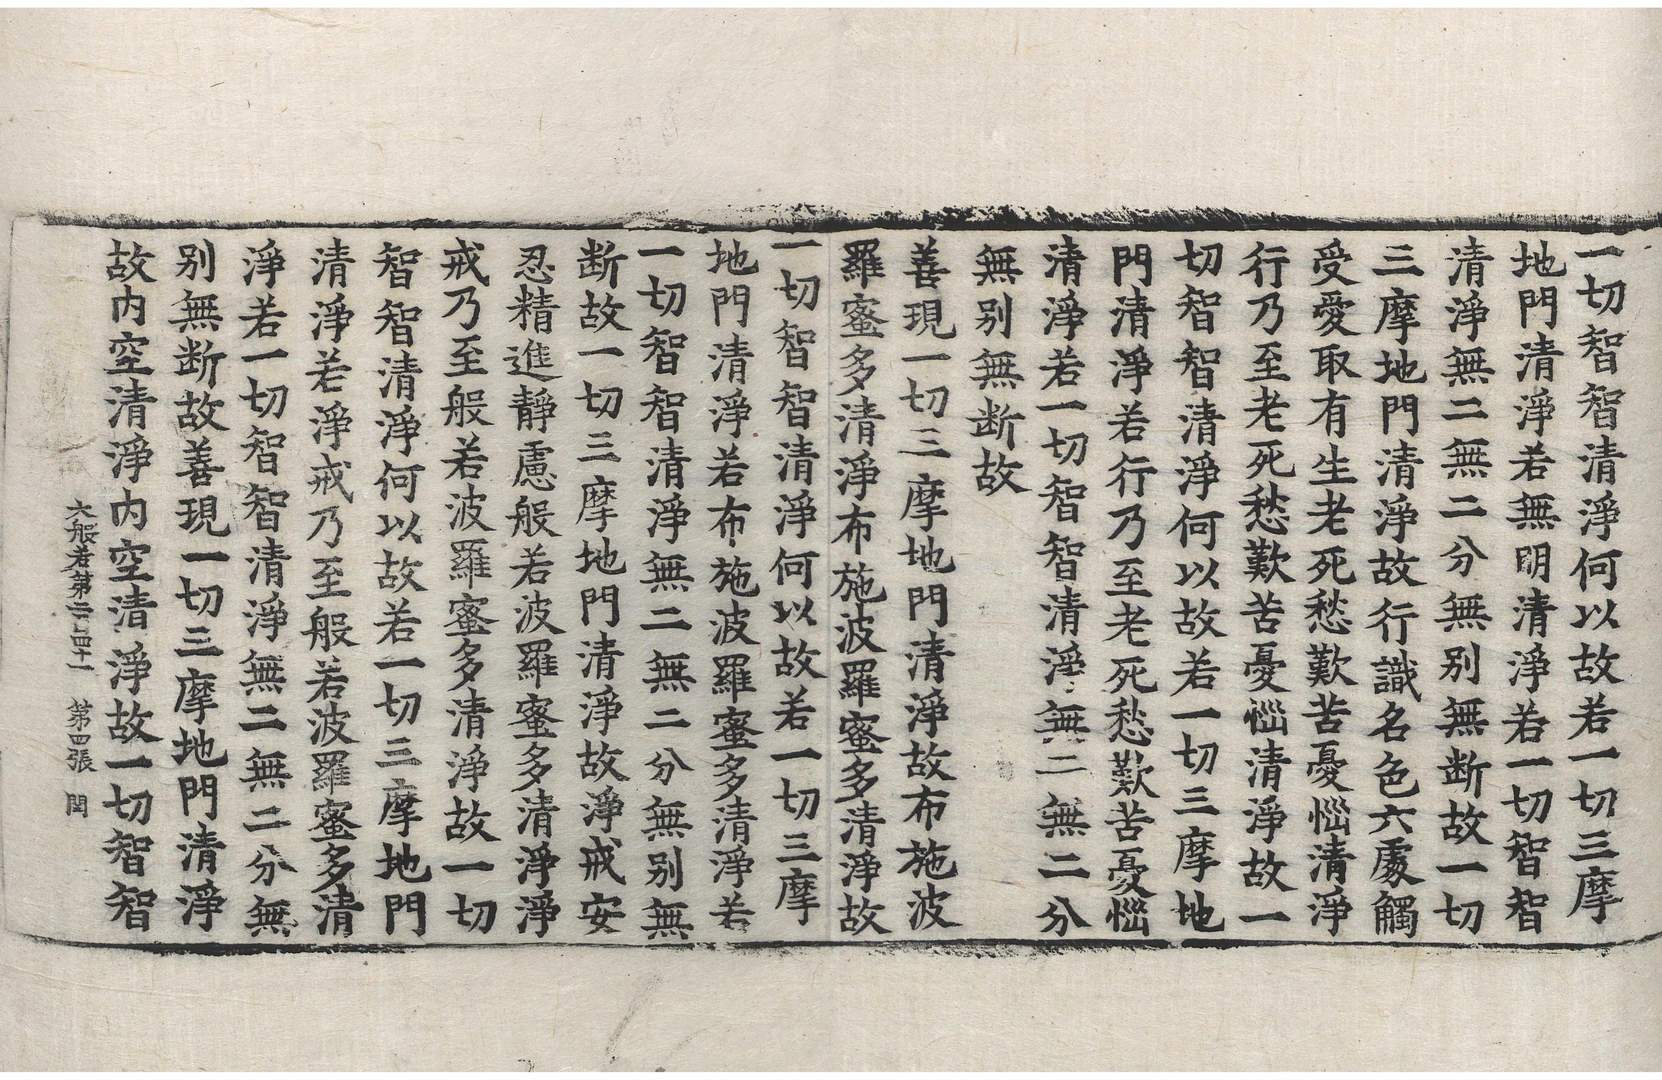 一切智智清淨何以故若一切三摩
地門清淨若無明清淨若一切智智
清淨無二無二分無別無断故一切
三摩地門清淨故行識名色六處觸
受愛取有生老死愁歎苦憂惱清淨
行乃至老死愁歎苦憂惱清淨故一
切智智清淨何以故若一切三摩地
門清淨若行乃至老死愁歎苦憂惱
清淨若一切智智清淨無二無二分
無別無断故
善現一切三摩地門清淨故布施波
羅蜜多清淨布施波羅蜜多清淨故
一切智智清淨何以故若一切三摩
地門清淨若布施波羅蜜多清淨若
一切智智清淨無二無二分無别無
断故一切三摩地門清淨故淨戒安
忍精進靜慮般若波羅蜜多清淨淨
戒乃至般若波羅蜜多清淨故一切
智智清淨何以故若一切三摩地門
清淨若淨戒乃至般若波羅蜜多清
淨若一切智智清淨無二無二分無
别無断故善現一切三摩地門清淨
故内空清淨内空清淨故一切智智
大般若第二百四十一 第四張 閏